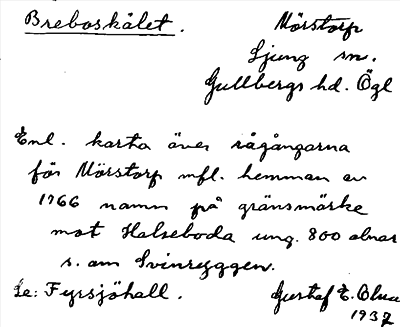 Breboskälet.
Mörstorp
Ljung sn.
Gullbergs hd. Ögl
Enl. karta över rågångarna
för Mörstorp mfl. hemman av
1766 namn på gränsmärke
mot Halseboda ung. 800 alnar
s. om Svinryggen.
Se: Fyrsjöhall. Gustaf E.
1937